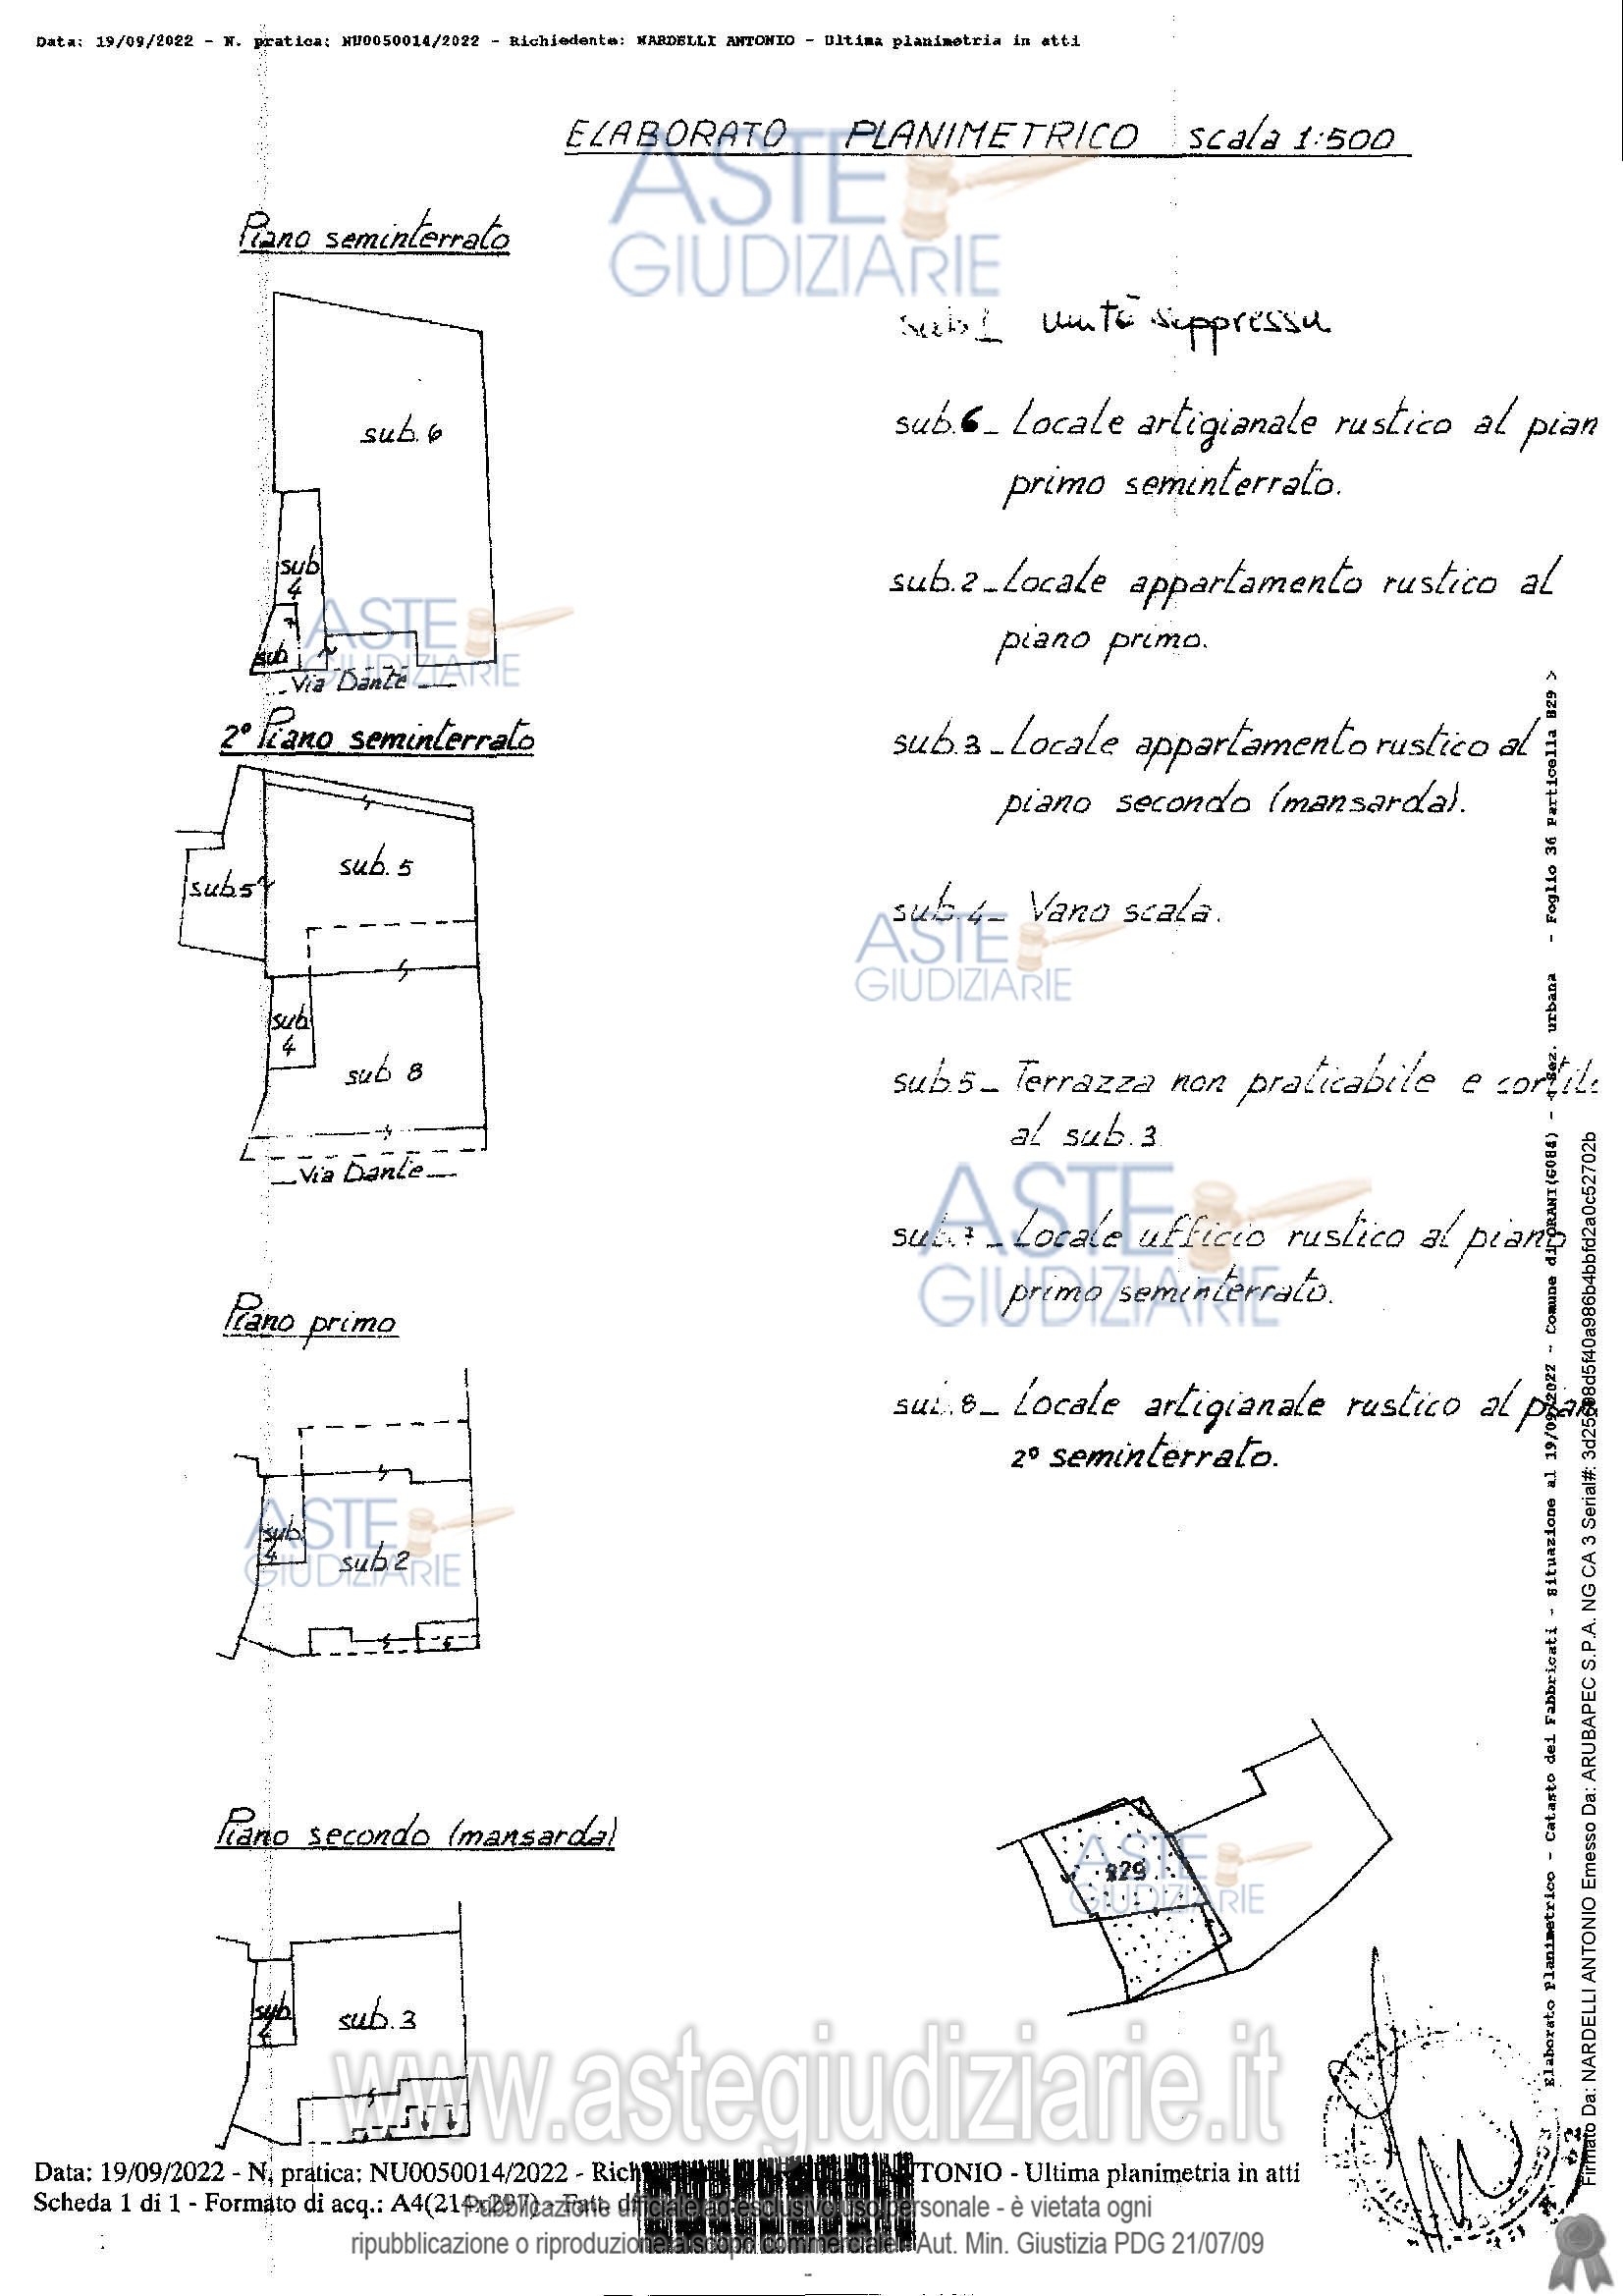 Data: 19/09/2022 - N. pratica: NU0050014/2022 - Richiedente: NARDELLI ANTONIO - Ultima planimetria in atti
ELABORATO PLANIMETRICO scala 1:500
ASTE
GIUDIZIARIE
Piano seminterrato
sub.6
sub
4
7
sub
Via Dante
ASTE
GIUDIZIARIE
2° Piano seminterrato
sub.5
sub5
sub
4
sub 8
Via Dante
Piano primo
sub
4
sub2
ASTE
GIUDIZIARIE
Piano secondo (mansarda)
sub
4
sub.3
sub 1 unità soppressa
sub.6 - Locale artigianale rustico al pian
primo seminterrato.
sub.2 - Locale appartamento rustico al
piano primo.
sub.3 - Locale appartamento rustico al
piano secondo (mansarda).
sub.4 - Vano scala.
ASTE
GIUDIZIARIE
sub.5 - Terrazza non praticabile e cortile
al sub.3
ASTE
GIUDIZIARIE
sub.7 - Locale ufficio rustico al piano
primo seminterrato.
sub.8 - Locale artigianale rustico al pian
2° seminterrato.
829
ASTE
GIUDIZIARIE
Elaborato Planimetrico - Catasto dei Fabbricati - Situazione al 19/09/2022 - Comune di ORANI(G084) - < Sez. urbana - Foglio 36 Particella 829 >
Firmato Da: NARDELLI ANTONIO Emesso Da: ARUBAPEC S.P.A. NG CA 3 Serial#: 3d25698d5f40a986b4bbfd2a0c52702b
www.astegiudiziarie.it
Data: 19/09/2022 - N. pratica: NU0050014/2022 - Rich TONIO - Ultima planimetria in atti
Scheda 1 di 1 - Formato di acq.: A4(214x297) - Fatt. di
Pubblicazione ufficiale ad esclusivo uso personale - è vietata ogni
ripubblicazione o riproduzione a scopo commerciale - Aut. Min. Giustizia PDG 21/07/09